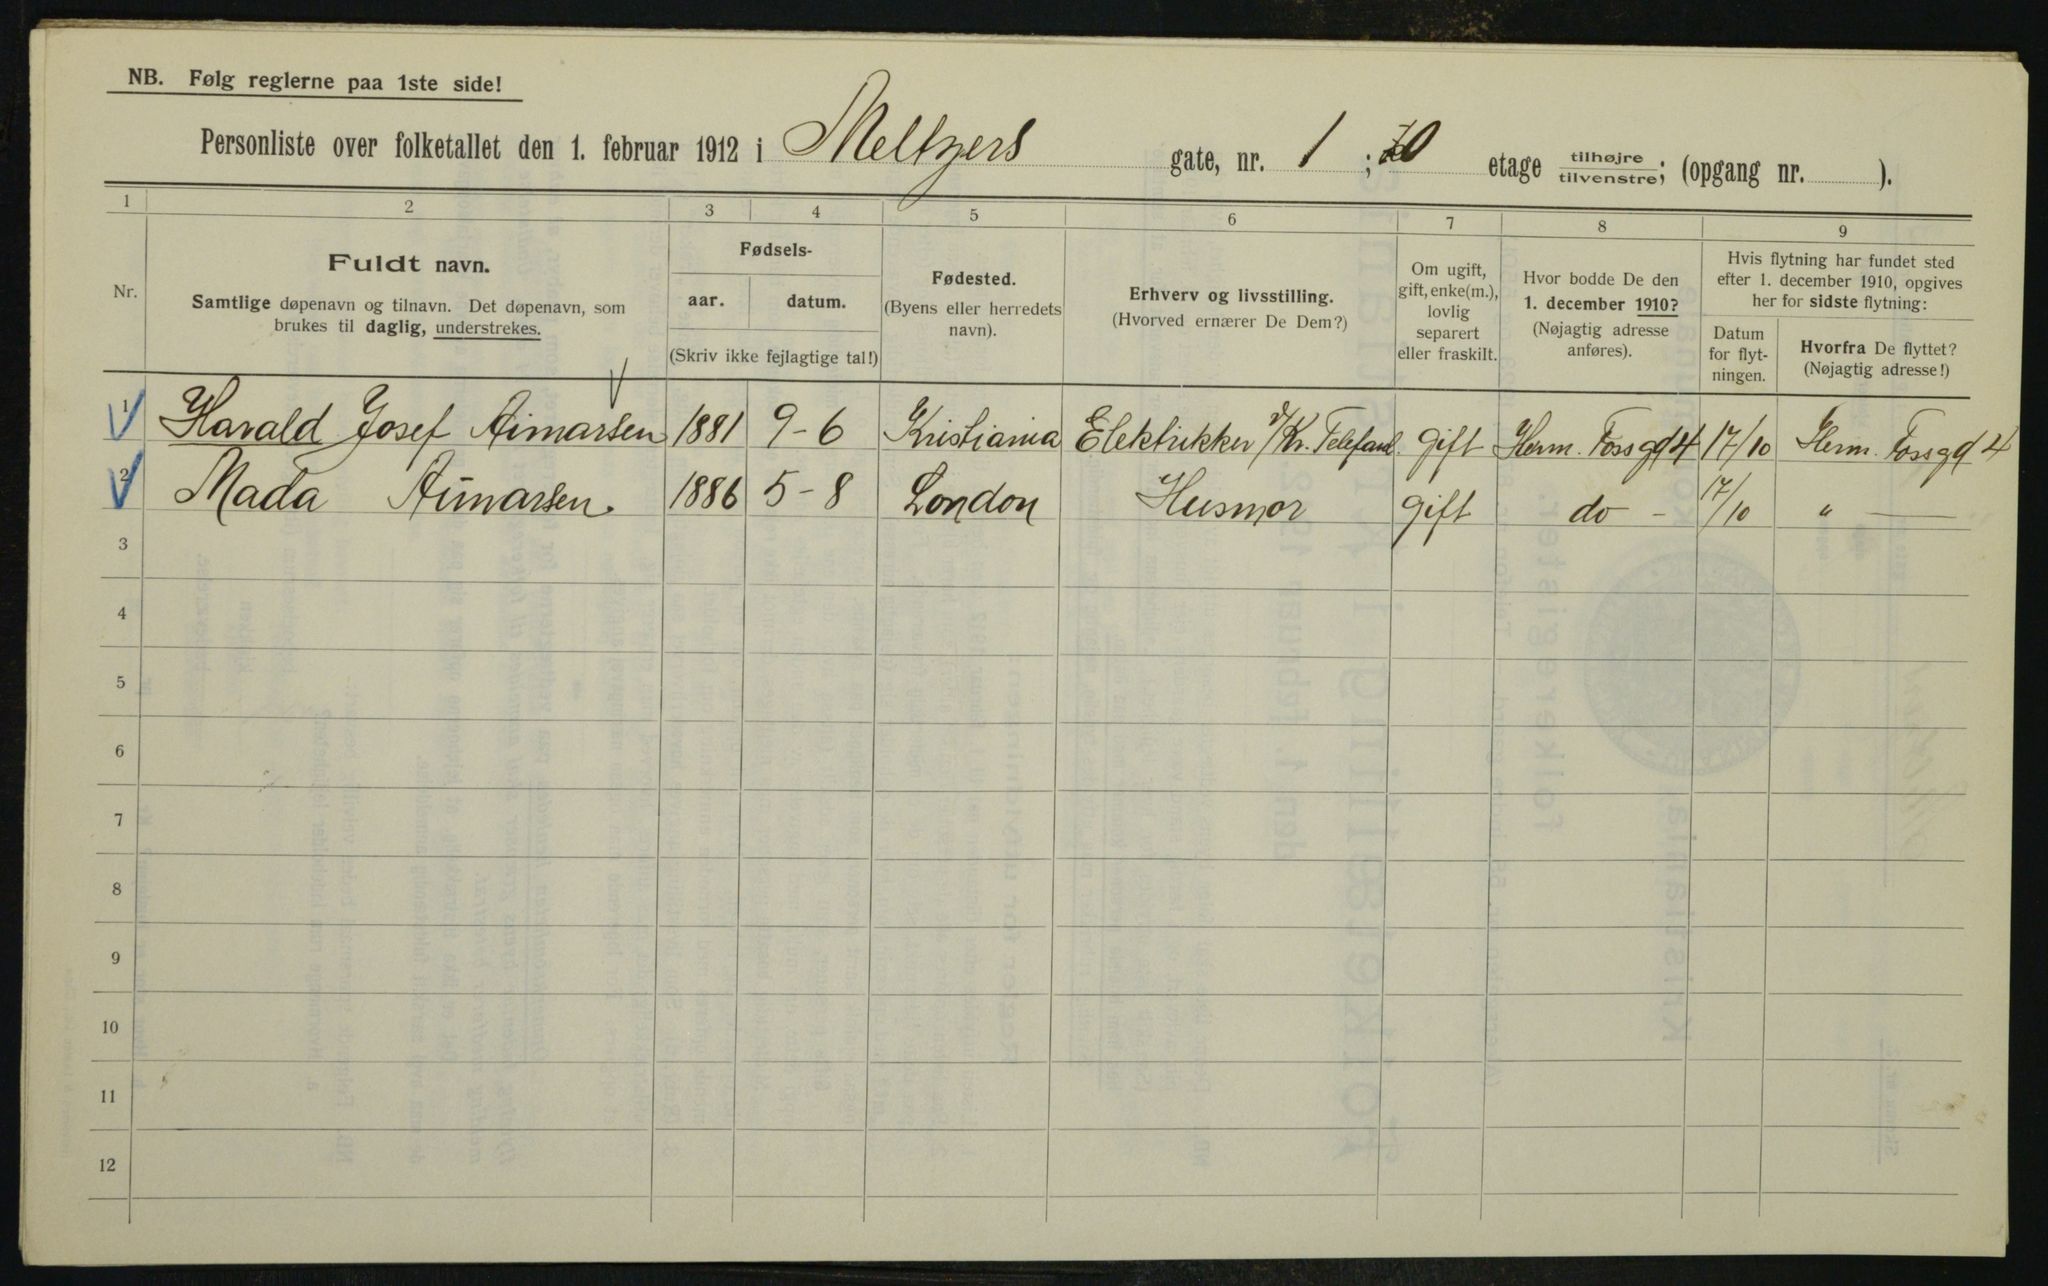 NB. Følg reglerne paa 1ste side!
Personliste over folketallet den 1. februar 1912 i Meltzers gate, nr. 1 ; etage tilhøjre tilvenstre; (opgang nr. ).
1 2 3 4 5 6 7 8 9
Nr.
Fuldt navn.
Samtlige døpenavn og tilnavn. Det døpenavn, som
brukes til daglig, understrekes.
Fødsels-
aar. datum.
(Skriv ikke fejlagtige tal!)
Fødested.
(Byens eller herredets
navn).
Erhverv og livsstilling.
(Hvorved ernærer De Dem?)
Om ugift,
gift, enke(m.),
lovlig
separert
eller fraskilt.
Hvor bodde De den
1. december 1910?
(Nøjagtig adresse
anføres).
Hvis flytning har fundet sted
efter 1. december 1910, opgives
her for sidste flytning:
Datum
for flyt-
ningen.
Hvorfra De flyttet?
(Nøjagtig adresse!)
1 Harald Josef Aimarsen 1881 9-6 Kristiania Elektrikker v/Kr. Telefanl. gift Herm. Fossgd 4 17/10 Herm. Fossgd 4
2 Mada Aimarsen 1886 5-8 London Husmor gift do - 17/10 " —
3
4
5
6
7
8
9
10
11
12